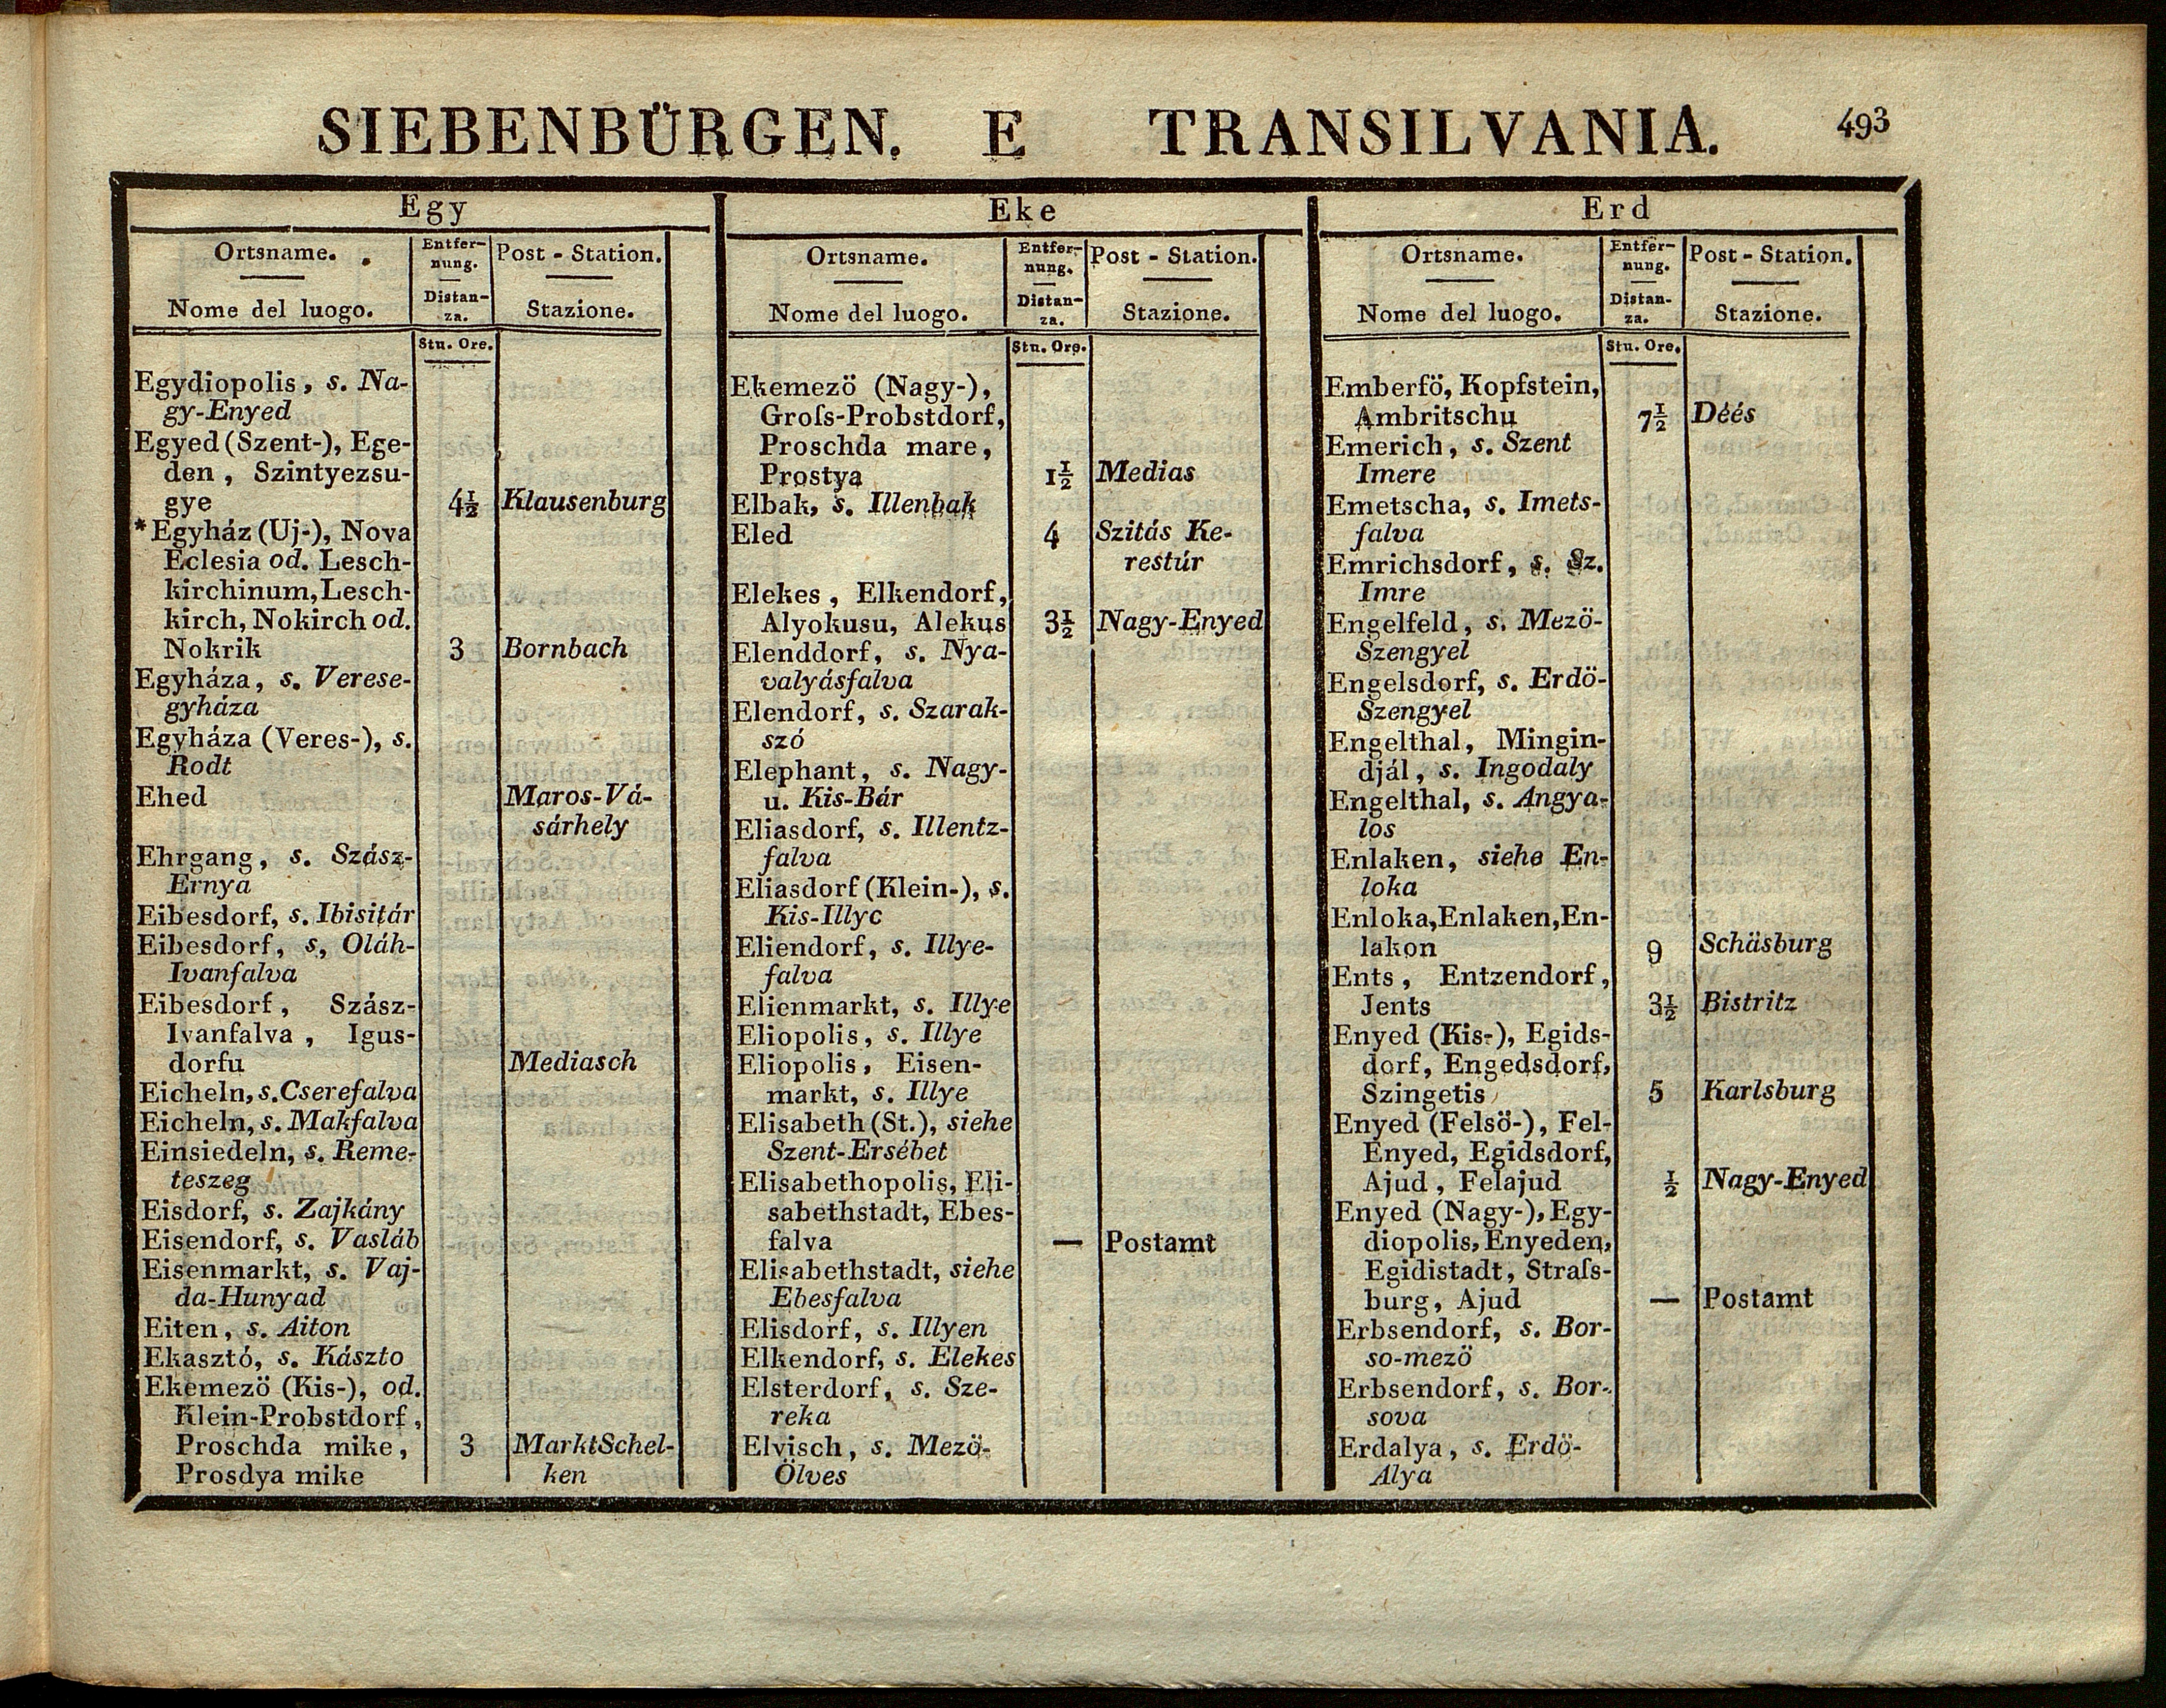 SIEBENBÜRGEN. E TRANSILVANIA. 493
Egy
Ortsname. Entfer- Post - Station.
nung.
Nome del luogo. Distan- Stazione.
za.
Stn. Ore.
Egydiopolis, s. Na-
gy-Enyed
Egyed (Szent-), Ege-
den, Szintyezsu-
gye 4½ Klausenburg
*Egyház (Uj-), Nova
Eclesia od. Lesch-
kirchinum, Lesch-
kirch, Nokirch od.
Nokrik 3 Bornbach
Egyháza, s. Verese-
gyháza
Egyháza (Veres-), s.
Rodt
Ehed Maros-Vá-
sárhely
Ehrgang, s. Szász-
Ernya
Eibesdorf, s. Ibisitár
Eibesdorf, s, Oláh-
Ivanfalva
Eibesdorf, Szász-
Ivanfalva, Igus-
dorfu Mediasch
Eicheln, s. Cserefalva
Eicheln, s. Makfalva
Einsiedeln, s. Reme-
teszeg
Eisdorf, s. Zajkány
Eisendorf, s. Vasláb
Eisenmarkt, s. Vaj-
da-Hunyad
Eiten, s. Aiton
Ekasztó, s. Kászto
Ekemezö (Kis-), od.
Klein-Probstdorf,
Proschda mike, 3 Markt Schel-
Prosdya mike ken
Eke
Ortsname. Entfer- Post - Station.
nung.
Nome del luogo. Distan- Stazione.
za.
Stn. Ore.
Ekemezö (Nagy-),
Groſs-Probstdorf,
Proschda mare,
Prostya 1½ Medias
Elbak, s. Illenbak
Eled 4 Szitás Ke-
restúr
Elekes, Elkendorf,
Alyokusu, Alekus 3½ Nagy-Enyed
Elenddorf, s. Nya-
valyásfalva
Elendorf, s. Szarak-
szó
Elephant, s. Nagy-
u. Kis-Bár
Eliasdorf, s. Illentz-
falva
Eliasdorf (Klein-), s.
Kis-Illyc
Eliendorf, s. Illye-
falva
Elienmarkt, s. Illye
Eliopolis, s. Illye
Eliopolis, Eisen-
markt, s. Illye
Elisabeth (St.), siehe
Szent-Ersébet
Elisabethopolis, Eli-
sabethstadt, Ebes-
falva — Postamt
Elisabethstadt, siehe
Ebesfalva
Elisdorf, s. Illyen
Elkendorf, s. Elekes
Elsterdorf, s. Sze-
reka
Elvisch, s. Mezö-
Ölves
Erd
Ortsname. Entfer- Post - Station.
nung.
Nome del luogo. Distan- Stazione.
za.
Stn. Ore.
Emberfö, Kopfstein,
Ambritschu 7½ Déés
Emerich, s. Szent
Imere
Emetscha, s. Imets-
falva
Emrichsdorf, s. Sz.
Imre
Engelfeld, s. Mezö-
Szengyel
Engelsdorf, s. Erdö-
Szengyel
Engelthal, Mingin-
djál, s. Ingodaly
Engelthal, s. Angya-
los
Enlaken, siehe En-
loka
Enloka, Enlaken, En-
lakon 9 Schäsburg
Ents, Entzendorf,
Jents 3½ Bistritz
Enyed (Kis-), Egids-
dorf, Engedsdorf,
Szingetis 5 Karlsburg
Enyed (Felsö-), Fel-
Enyed, Egidsdorf,
Ajud, Felajud ½ Nagy-Enyed
Enyed (Nagy-), Egy-
diopolis, Enyeden,
Egidistadt, Straſs-
burg, Ajud — Postamt
Erbsendorf, s. Bor-
so-mezö
Erbsendorf, s. Bor-
sova
Erdalya, s. Erdö-
Alya